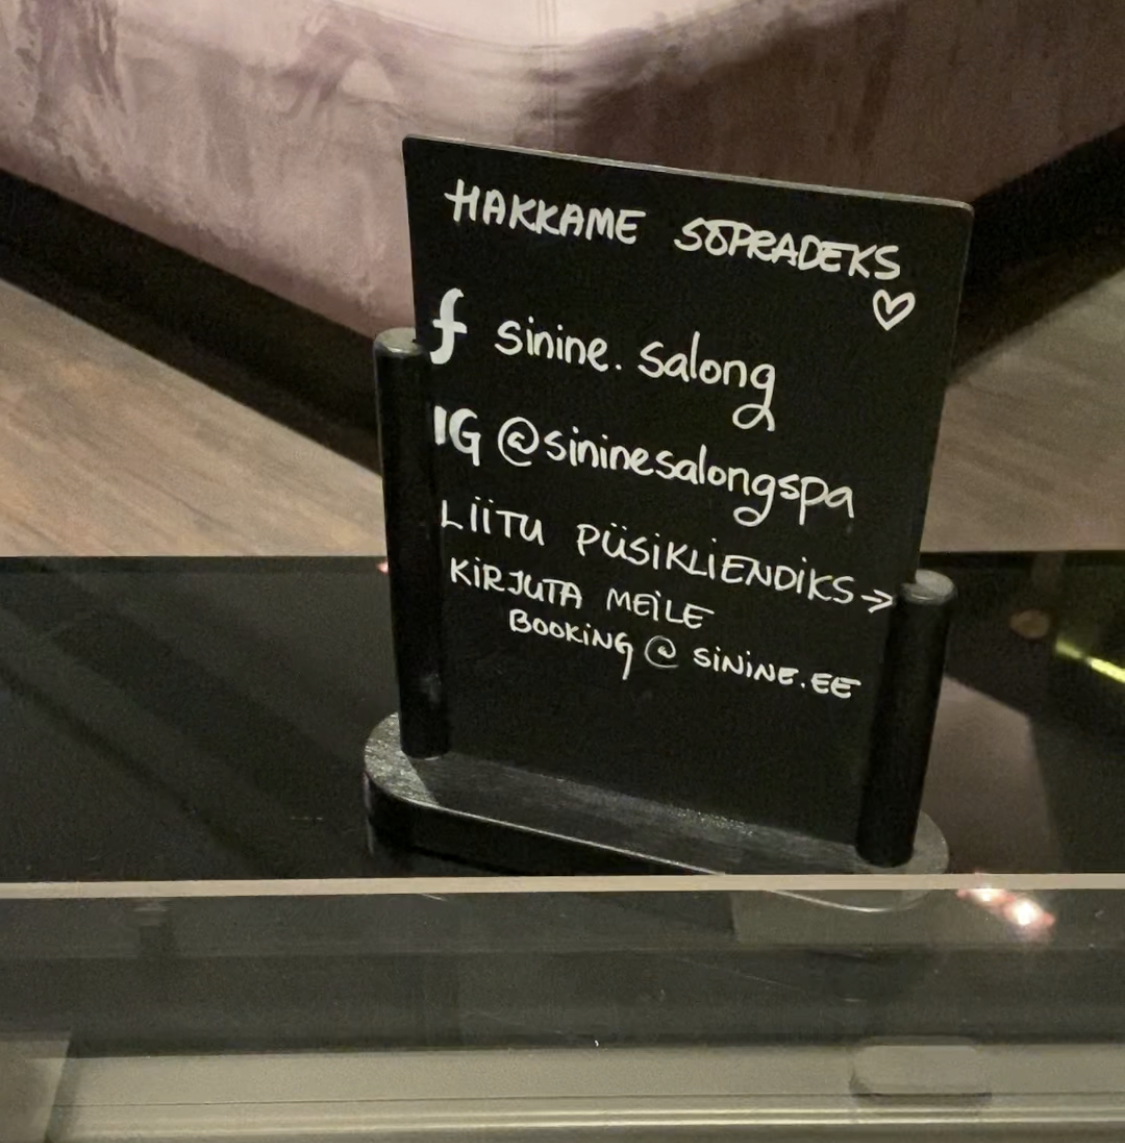 HAKKAME SÕPRADEKS
♡
f sinine.salong
IG @sininesalongspa
LIITU PÜSIKLIENDIKS →
KIRJUTA MEILE
BOOKING@SININE.EE